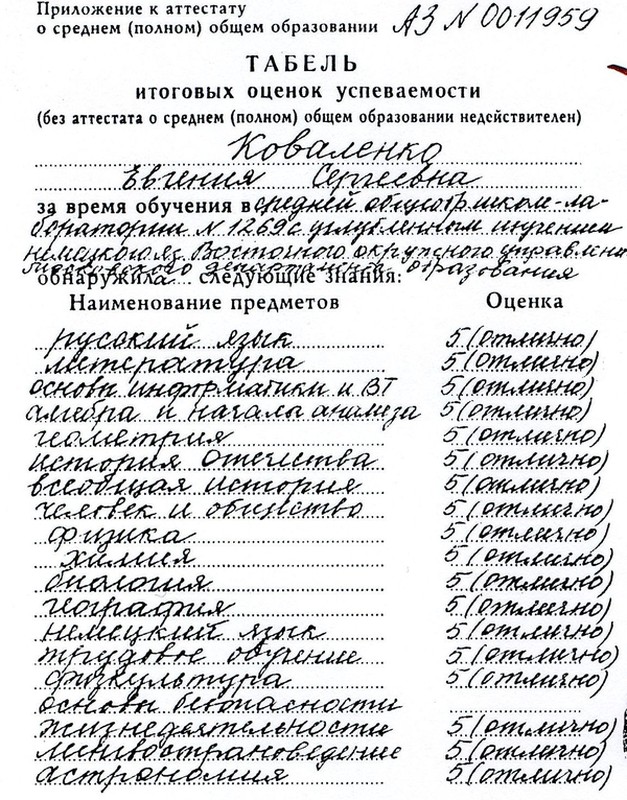 Приложение к аттестату
о среднем (полном) общем образовании АЗ N 0011959
ТАБЕЛЬ
итоговых оценок успеваемости
(без аттестата о среднем (полном) общем образовании недействителен)
Коваленко
Евгения Сергеевна
за время обучения в средней общеобр. школе-ла-
боратории N 1269 с углубленным изучением
немецкого яз. Восточного окружного управлени
Московского департамента образования
обнаружила следующие знания:
Наименование предметов Оценка
русский язык 5 (отлично)
литература 5 (отлично)
основы информатики и ВТ 5 (отлично)
алгебра и начала анализа 5 (отлично)
геометрия 5 (отлично)
история Отечества 5 (отлично)
всеобщая история 5 (отлично)
человек и общество 5 (отлично)
физика 5 (отлично)
химия 5 (отлично)
биология 5 (отлично)
география 5 (отлично)
немецкий язык 5 (отлично)
трудовое обучение 5 (отлично)
физкультура 5 (отлично)
основы безопасности
жизнедеятельности 5 (отлично)
лингвострановедение 5 (отлично)
астрономия 5 (отлично)